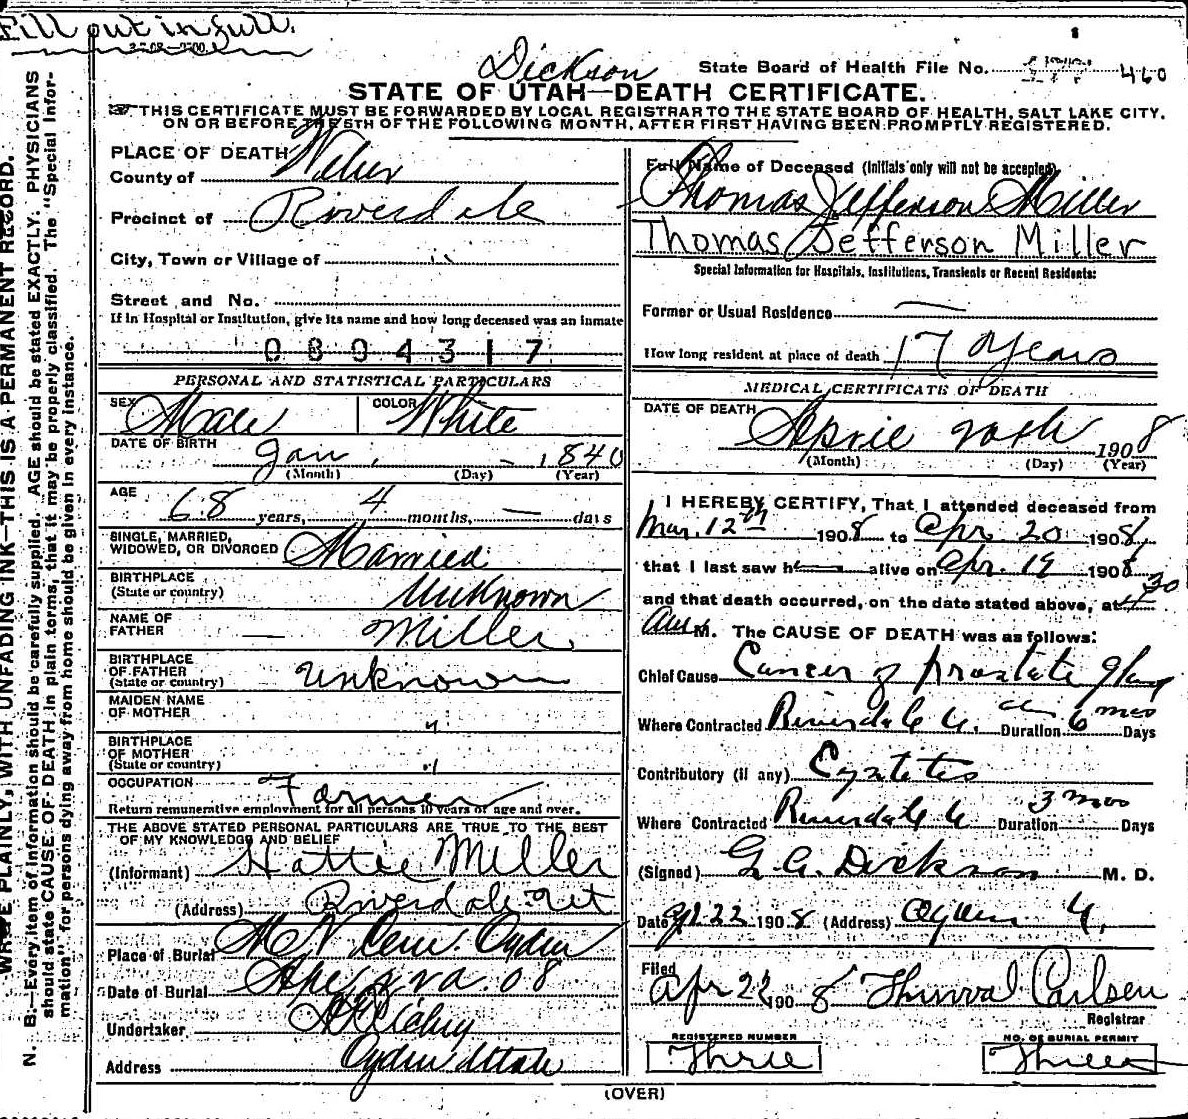 Fill out in full.
Dickson
State Board of Health File No. 460
STATE OF UTAH—DEATH CERTIFICATE.
THIS CERTIFICATE MUST BE FORWARDED BY LOCAL REGISTRAR TO THE STATE BOARD OF HEALTH, SALT LAKE CITY,
ON OR BEFORE THE 5TH OF THE FOLLOWING MONTH, AFTER FIRST HAVING BEEN PROMPTLY REGISTERED.
WRITE PLAINLY, WITH UNFADING INK—THIS IS A PERMANENT RECORD.
N. B.—Every item of information should be carefully supplied. AGE should be stated EXACTLY. PHYSICIANS
should state CAUSE OF DEATH in plain terms, that it may be properly classified. The "Special Infor-
mation" for persons dying away from home should be given in every instance.
PLACE OF DEATH
County of Weber
Precinct of Riverdale
City, Town or Village of "
Street and No.
If in Hospital or Institution, give its name and how long deceased was an inmate
0804317
PERSONAL AND STATISTICAL PARTICULARS
SEX Male COLOR White
DATE OF BIRTH Jan. — 1840
(Month) (Day) (Year)
AGE 68 years, 4 months, — days
SINGLE, MARRIED,
WIDOWED, OR DIVORCED Married
BIRTHPLACE
(State or country) Unknown
NAME OF
FATHER — Miller
BIRTHPLACE
OF FATHER
(State or country) Unknown
MAIDEN NAME
OF MOTHER "
BIRTHPLACE
OF MOTHER
(State or country) "
OCCUPATION Farmer
Return remunerative employment for all persons 10 years of age and over.
THE ABOVE STATED PERSONAL PARTICULARS ARE TRUE TO THE BEST
OF MY KNOWLEDGE AND BELIEF
(Informant) Hattie Miller
(Address) Riverdale Ut
Place of Burial Cem. Ogden
Date of Burial 08
Undertaker
Address Ogden Utah
Full Name of Deceased (Initials only will not be accepted)
Thomas Jefferson Miller
Thomas Jefferson Miller
Special Information for Hospitals, Institutions, Transients or Recent Residents:
Former or Usual Residence —
How long resident at place of death 17 Years
MEDICAL CERTIFICATE OF DEATH
DATE OF DEATH
April 20th 1908
(Month) (Day) (Year)
I HEREBY CERTIFY, That I attended deceased from
Mar. 12th 1908 to Apr 20 1908,
that I last saw h— alive on Apr. 19 1908
and that death occurred, on the date stated above, at 30
M. The CAUSE OF DEATH was as follows:
Chief Cause Cancer of prostate gland
Where Contracted Riverdale U. Duration 6 mos Days
Contributory (if any) Cystitis
Where Contracted Riverdale U Duration 3 mos Days
(Signed) G. A. Dickson M. D.
Date Apl. 22 1908 (Address) Ogden U,
Filed
Apr 22 1908 Thorval Carlsen
Registrar
REGISTERED NUMBER
Three
NO. OF BURIAL PERMIT
Three
(OVER)